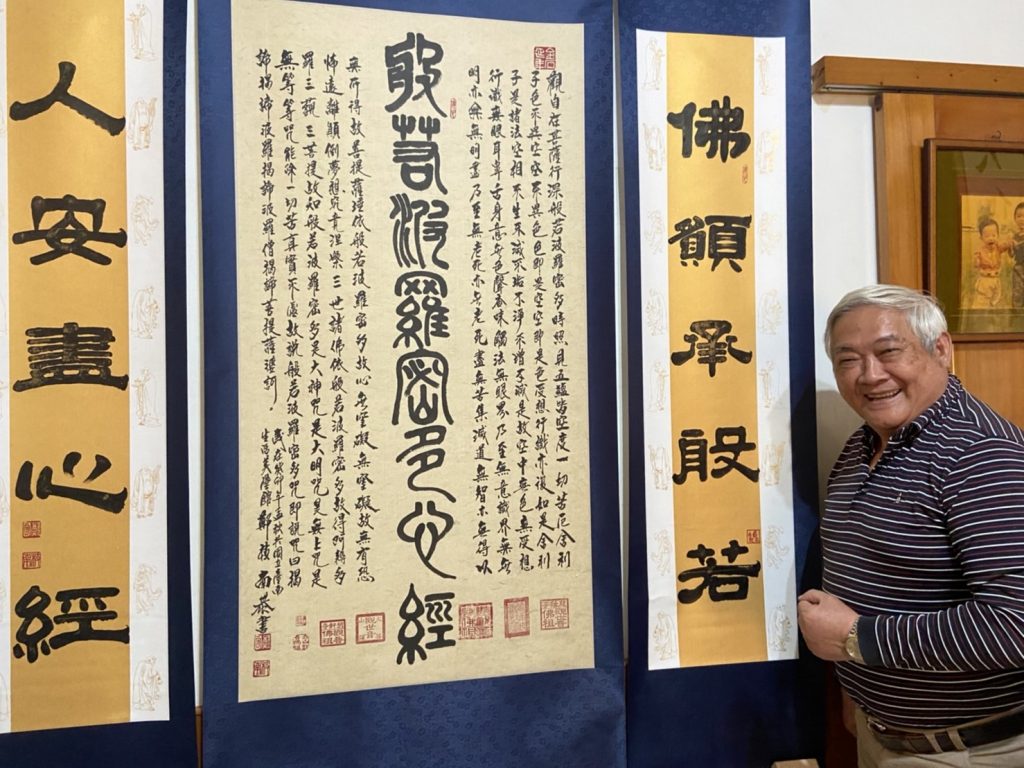 佛願承般若
觀自在菩薩行深般若波羅密多時照見五蘊皆空度一切苦厄舍利
子色不異空空不異色色即是空空即是色受想行識亦復如是舍利
子是諸法空相不生不滅不垢不淨不增不減是故空中無色無受想
行識無眼耳鼻舌身意無色聲香味觸法無眼界乃至無意識界無無
明亦無無明盡乃至無老死亦無老死盡無苦集滅道無智亦無得以
般若波羅密多心經
無所得故菩提薩埵依般若波羅密多故心無罣礙無罣礙故無有恐
怖遠離顛倒夢想究竟涅槃三世諸佛依般若波羅密多故得阿耨多
羅三藐三菩提故知般若波羅密多是大神咒是大明咒是無上咒是
無等等咒能除一切苦真實不虛故說般若波羅密多咒即說咒曰揭
諦揭諦波羅揭諦波羅僧揭諦菩提薩婆訶
歲在癸卯年孟秋於國立臺南
生活美學館鄭 恭書
觀世音
人安盡心經